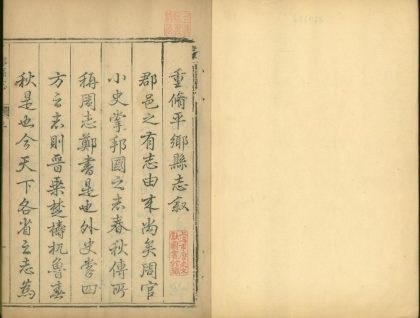 重脩平鄉縣志叙
郡邑之有志由来尚矣周官
小史掌邦國之志春秋傳所
稱周志鄭書是也外史掌四
方之志則晋乗楚梼杌魯春
秋是也今天下各省之志為